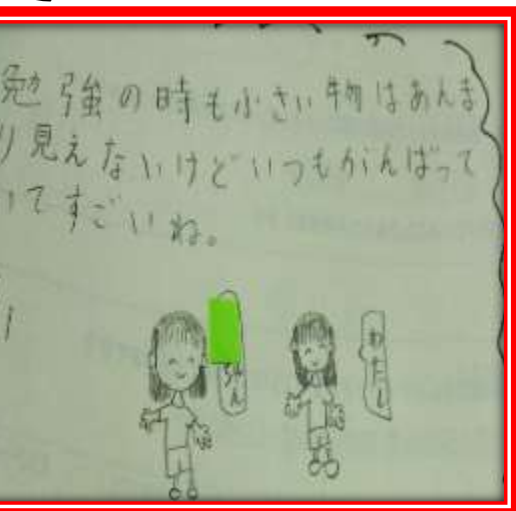 勉強の時も小さい物はあんま
り見えないけどいつもがんばって
てすごいね。
ちゃん
わたし